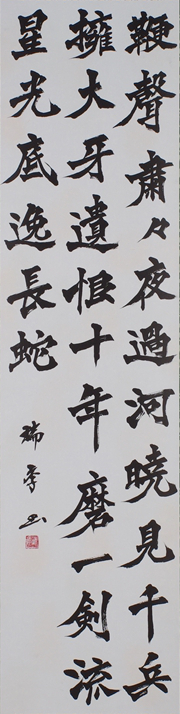 鞭聲肅々夜過河曉見千兵
擁大牙遺恨十年磨一剣流
星光底逸長蛇
書